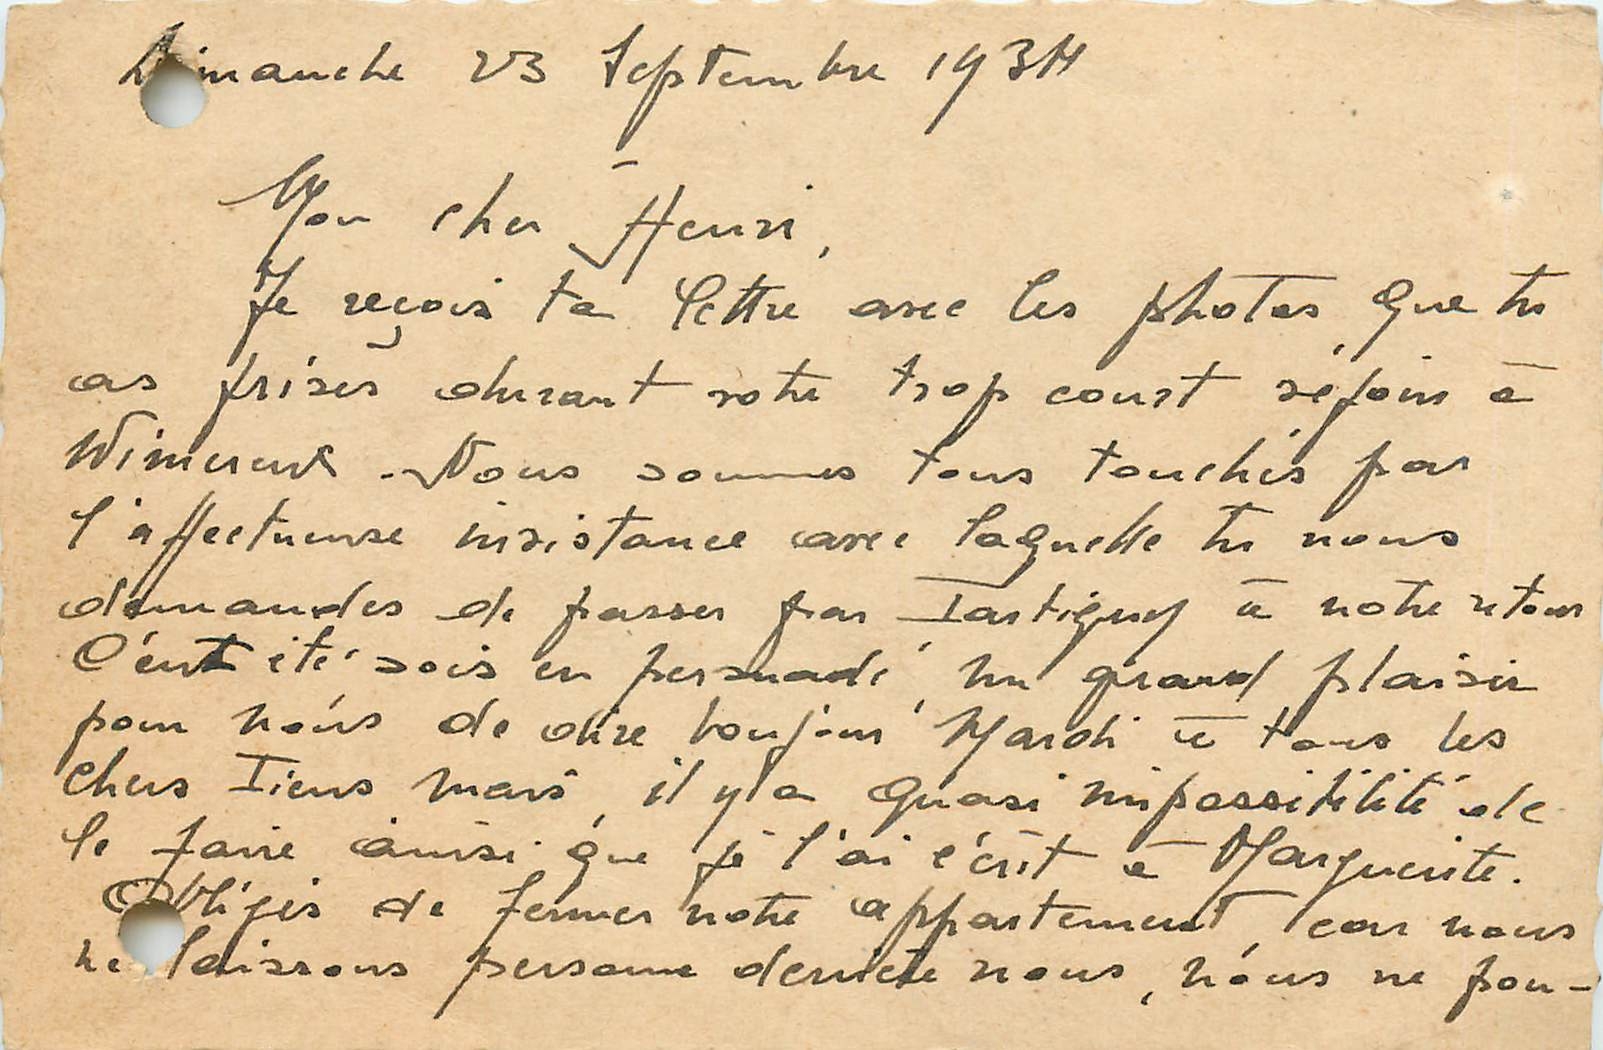 Dimanche 23 Septembre 1934
Mon cher Henri,
Je reçois ta lettre avec les photos que tu
as prises durant votre trop court séjour à
Wimereux. Nous sommes tous touchés par
l'affectueuse insistance avec laquelle tu nous
demandes de passer par Tartigny à notre retour
C'eut été sois en persuadé, un grand plaisir
pour nous de dire bonjour Mardi à tous les
chers Tiens mais, il y a quasi impossibilité de
le faire ainsi que je l'ai écrit à Marguerite.
Obligés de fermer notre appartement, car nous
ne laissons personne derrière nous, nous ne pou-